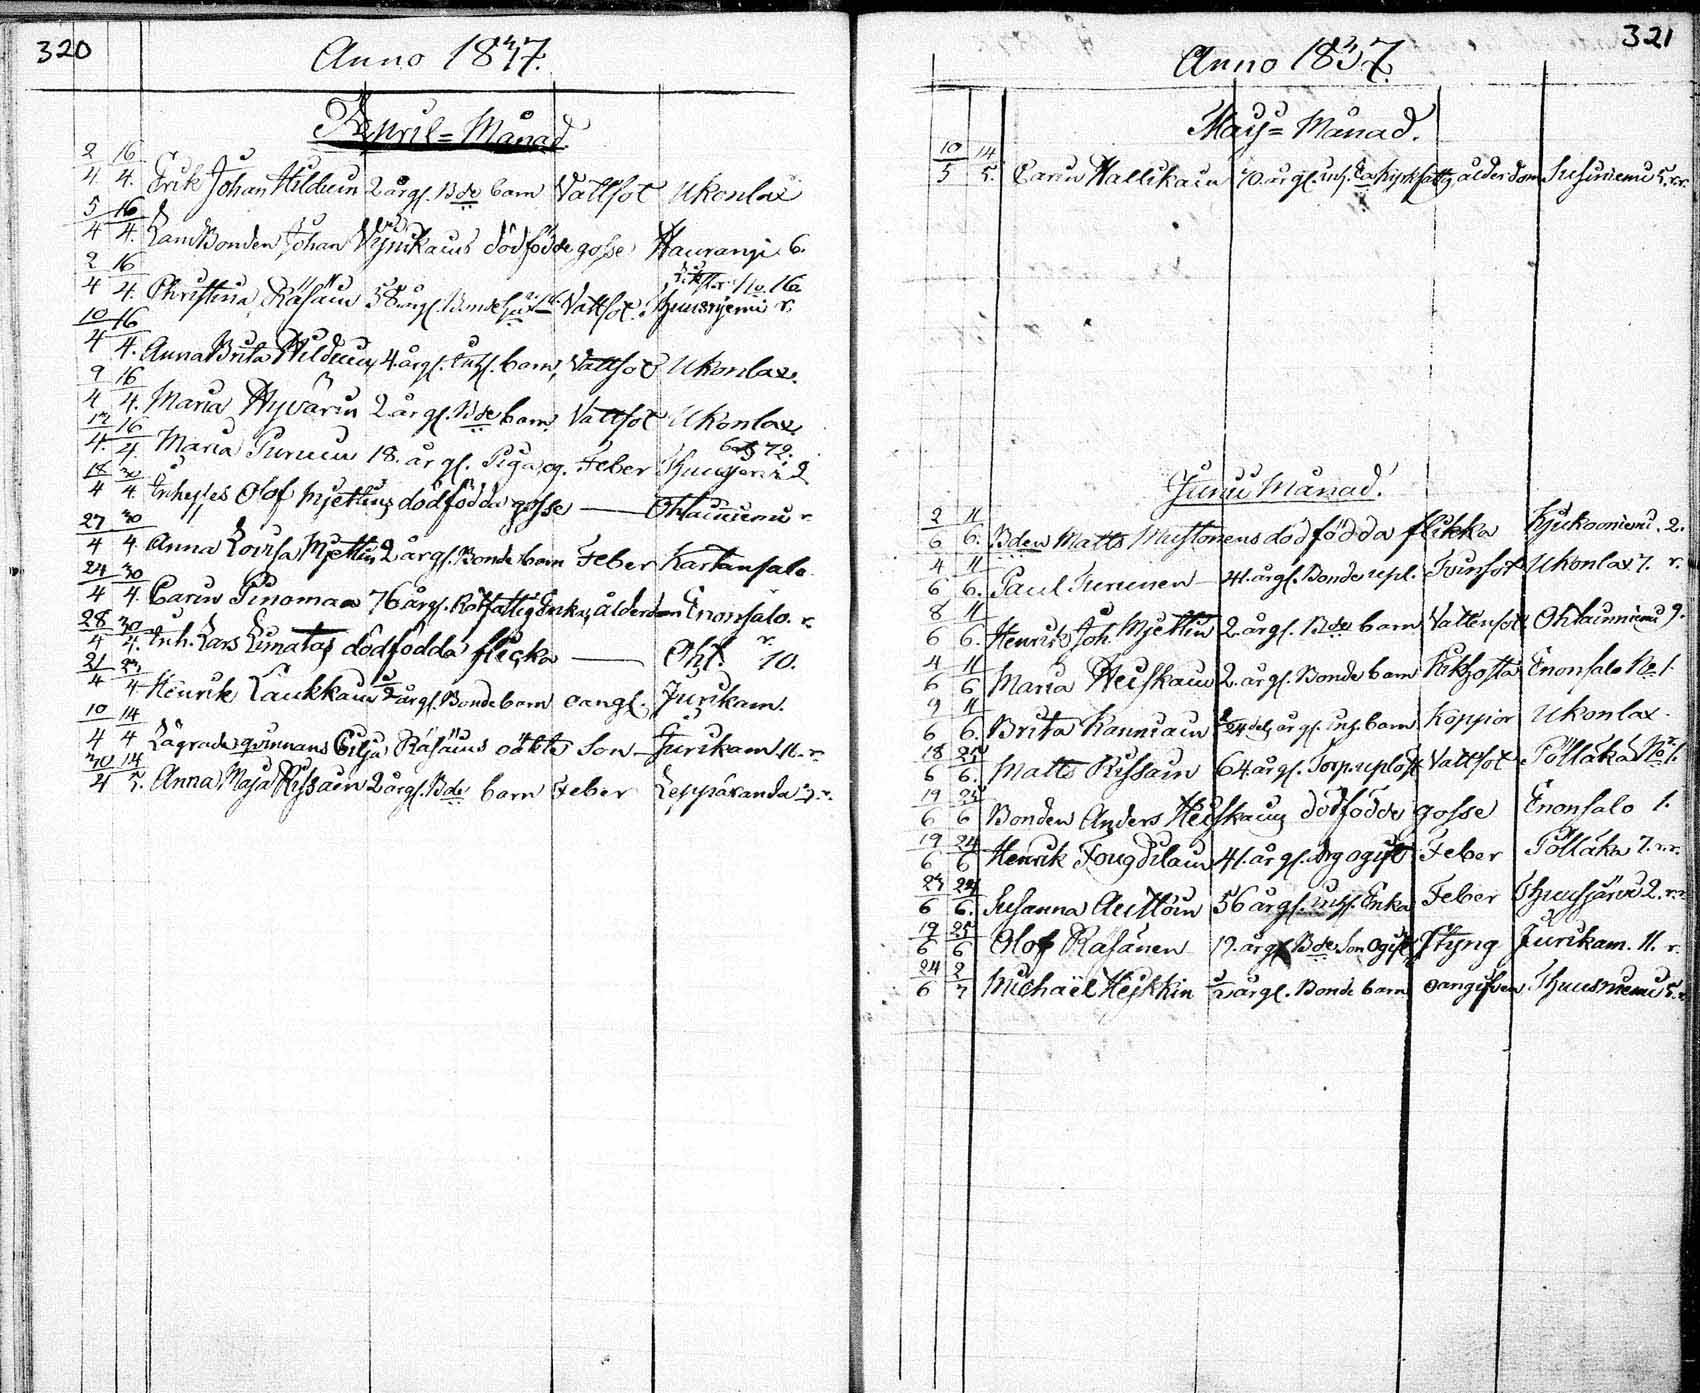 320
Anno 1837.
April = Månad.
2/4 16/4. Erik Johan Hilduin 2 årgl. Bde barn Vattsot Ukonlax
5/4 16/4. LandBonden Johan dödfödde gosse Haurangi 6.
2/4 16/4. Christina Räsäin 58 årgl. Vattsot. Thuusnjemi r.
10/4 16/4. Anna Brita Hilduin 4 årgl. inh. barn, Vattsot Ukonlax.
9/4 16/4. Maria Hyvärin 2 årgl. Bde barn Vattsot Ukonlax.
12/4. 16/4 Maria Turuin 18. årgl. Piga og. Feber
18/4 30/4. Inhyses Olof Mjettins dödfödda gosse — Ohtainniemi r.
27/4 30/4. Anna Lovisa Mjettin 2 årgl. Bonde barn Feber Kartansalo
24/4 30/4. Carin Pinomaa 76 årgl. Rotfattig Enka, ålderdom Enonsalo. r.
28/4 30/4. Inh. Lars Limatas dödfödda flicka — Oht. 10. r.
21/4 Henrik Laukkain årgl. Bondebarn oangl. Jurikam.
10/4 14/4 Lägrade qvinnans Cilja Räsäins oäkta Son — Jurikam. 11. r.
30/4 14/5. Anna Maja Rissain 2 årgl. Bde barn Feber Lepparanda 3. r.
321
Anno 1837.
Maij = Månad.
10/5 14/5. Carin Hallikain 70. årgl. inh. Enka ålderdom Susiniemi 5. r.r.
Junii Månad.
2/6 11/6. Bden Matts Mustonens dödfödda flikka Kjukooniemi. 2.
4/6 11/6. Paul Turunen 41. årgl. Bonde upl. Tvinsot Ukonlax 7. r.
8/6 11/6. Henrik Joh. Mjettin 2 årgl. Bde barn Vattensot Ohtainniemi 9.
4/6 11/6 Maria Heiskain 2. årgl. Bonde barn Kikhosta Enonsalo No 1.
9/6 11/6. Brita Kanniain årgl. inh. barn Koppor Ukonlax.
18/6 25/6. Matts Rissain 64 årgl. Vattsot Pöllåkä No 1.
19/6 25/6 Bonden Anders Heiskains dödfödde gosse Enonsalo 1.
19/6 24/6 Henrik Fougdilain 41. årgl. drg ogift Feber Pöllåkä 7. r.r.
23/6 24/6. Susanna Auttoin 56 årgl. inh. Enka Feber Thuusjärvi 2. r.r.
19/6 25/6 Olof Räsänen 17. årgl. Bde Son Ogift Styng Jurikam. 11. r.
24/6 2/7 Michaël Hejkkin ½ årgl. Bonde barn oangifven Thuusniemi 5. r.